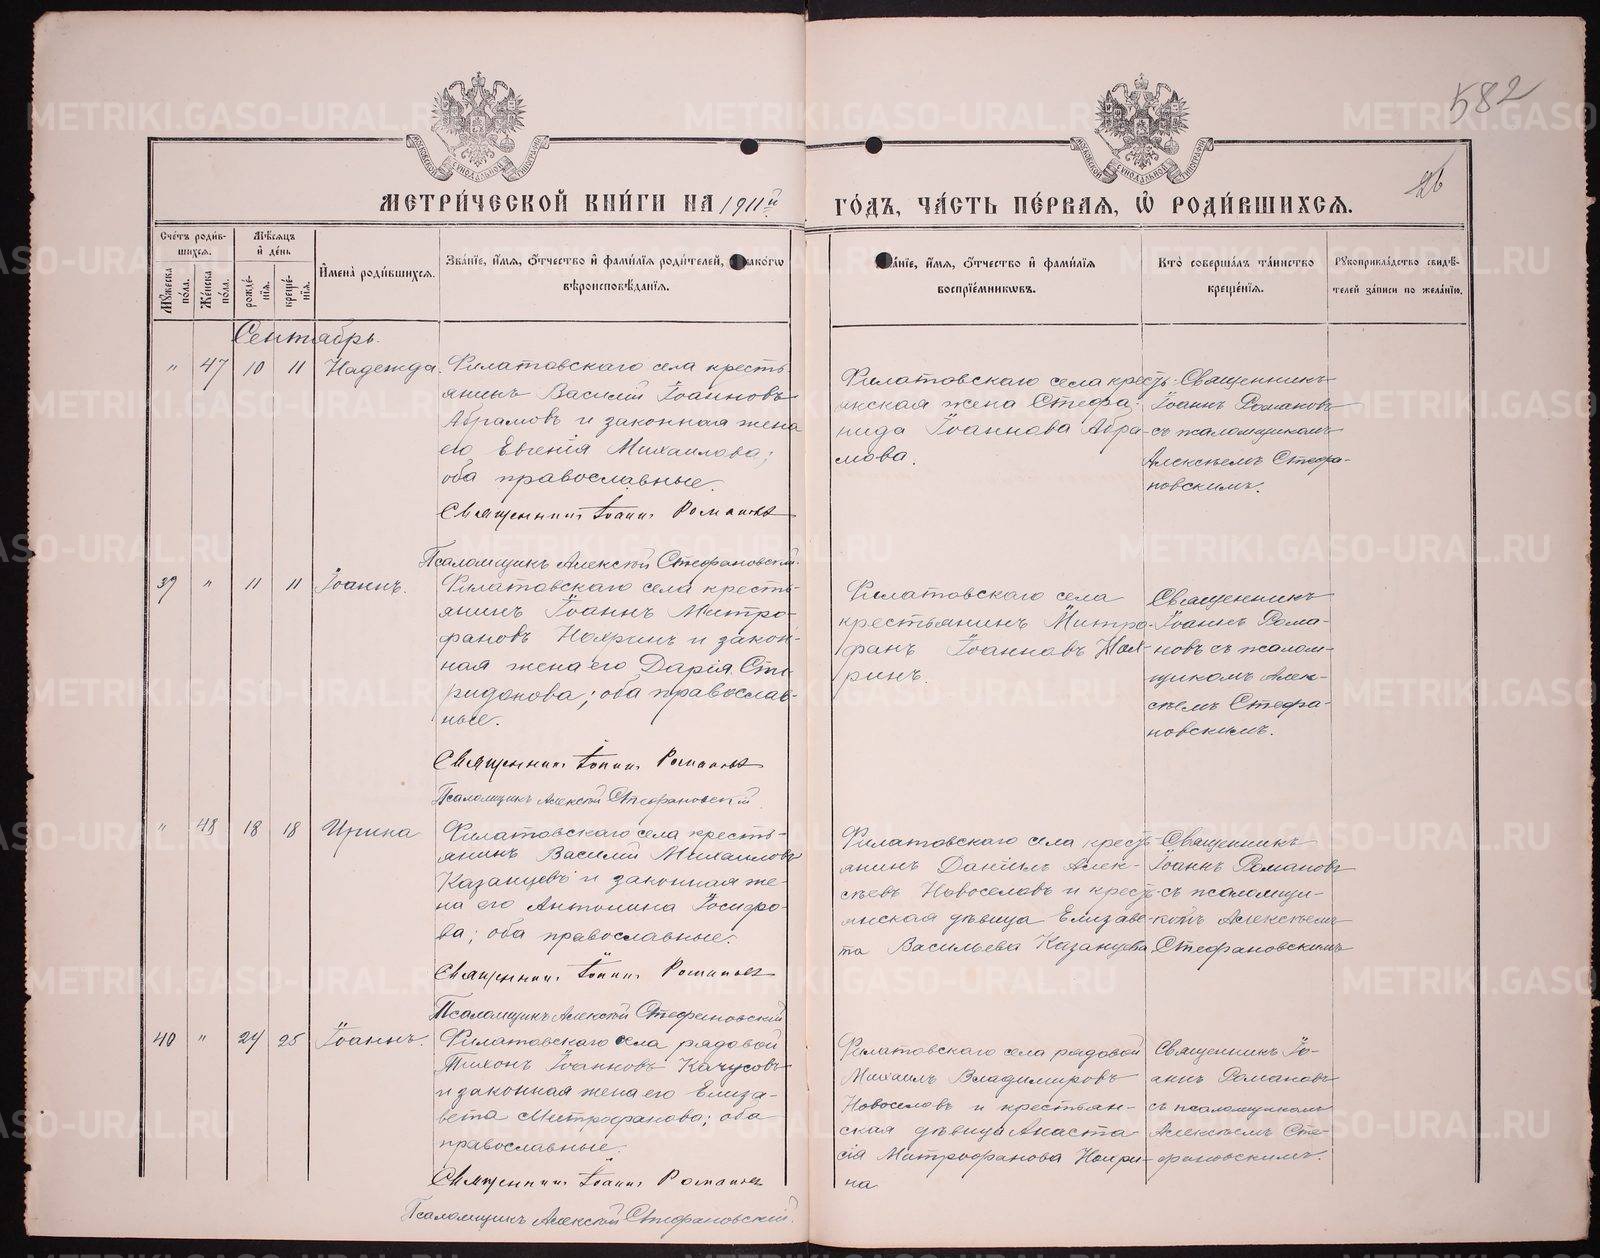 582
26
МЕТРИ́ЧЕСКОЙ КНИ́ГИ НА 1911й ГО́ДЪ, ЧА́СТЬ ПЕ́РВАЯ, Ѡ РОДИ́ВШИХСЯ.
Сче́тъ роди́в-
шихся.
Му́жеска по́ла.
Же́нска по́ла.
Мѣ́сяцъ
и́ де́нь
рожде́-
нїя.
креще́-
нїя.
И҆мена̀ роди́вшихся.
Зва́нїе, и҆́мя, ѻ҆́тчество и҆ фами́лїя роди́телей, и҆ како́гѡ
вѣроисповѣ́данїя.
Зва́нїе, и҆́мя, ѻ҆́тчество и҆ фами́лїя
воспрїе́мникѡвъ.
Кто̀ соверша́лъ та́инство
креще́нїя.
Рꙋкоприкла́дство свидѣ́-
телей за́писи по жела́нїю.
Сентябрь.
" 47 10 11 Надежда.
Филатовскаго села кресть-
янинъ Василій Іоанновъ
Абрамовъ и законная жена
его Евгенія Михаилова;
оба православные.
Священникъ Іоаннъ Романовъ
Псаломщикъ Алексѣй Стефановскій.
Филатовскаго села кресть-
янская жена Стефа-
нида Іоаннова Абра-
мова.
Священникъ
Іоаннъ Романовъ
съ псаломщикомъ
Алексѣемъ Стефа-
новскимъ.
39 " 11 11 Іоаннъ.
Филатовскаго села кресть-
янинъ Іоаннъ Митро-
фановъ Нохринъ и закон-
ная жена его Дарія Спи-
ридонова; оба православ-
ные.
Священникъ Іоаннъ Романовъ
Псаломщикъ Алексѣй Стефановскій.
Филатовскаго села
крестьянинъ Митро-
фанъ Іоанновъ Нох-
ринъ.
Священникъ
Іоаннъ Рома-
новъ съ псалом-
щикомъ Алек-
сѣемъ Стефа-
новскимъ.
" 48 18 18 Ирина
Филатовскаго села кресть-
янинъ Василій Михаиловъ
Казанцевъ и законная же-
на его Антонина Іосифо-
ва; оба православные.
Священникъ Іоаннъ Романовъ
Псаломщикъ Алексѣй Стефановскій
Филатовскаго села кресть-
янинъ Даніилъ Алек-
сѣевъ Новоселовъ и кресть-
янская дѣвица Елизаве-
та Васильева Казанцева
Священникъ
Іоаннъ Романовъ
съ псаломщи-
комъ Алексѣемъ
Стефановскимъ
40 " 24 25 Іоаннъ.
Филатовскаго села рядовой
Тихонъ Іоанновъ Качусовъ
и законная жена его Елиза-
вета Митрофанова; оба
православные.
Священникъ Іоаннъ Романовъ
Псаломщикъ Алексѣй Стефановскій.
Филатовскаго села рядовой
Михаилъ Владимировъ
Новоселовъ и крестьян-
ская дѣвица Анаста
сія Митрофанова Нохри-
на
Священникъ Іо-
аннъ Романовъ
съ псаломщикомъ
Алексѣемъ Сте-
фановскимъ.
METRIKI.GASO-URAL.RU